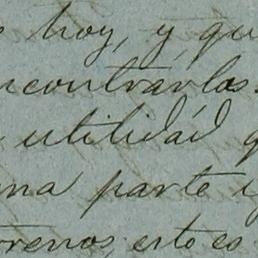 hoy, y qu
ncontrarlos.
utilidád q
ma parte y
rrenos, esto es